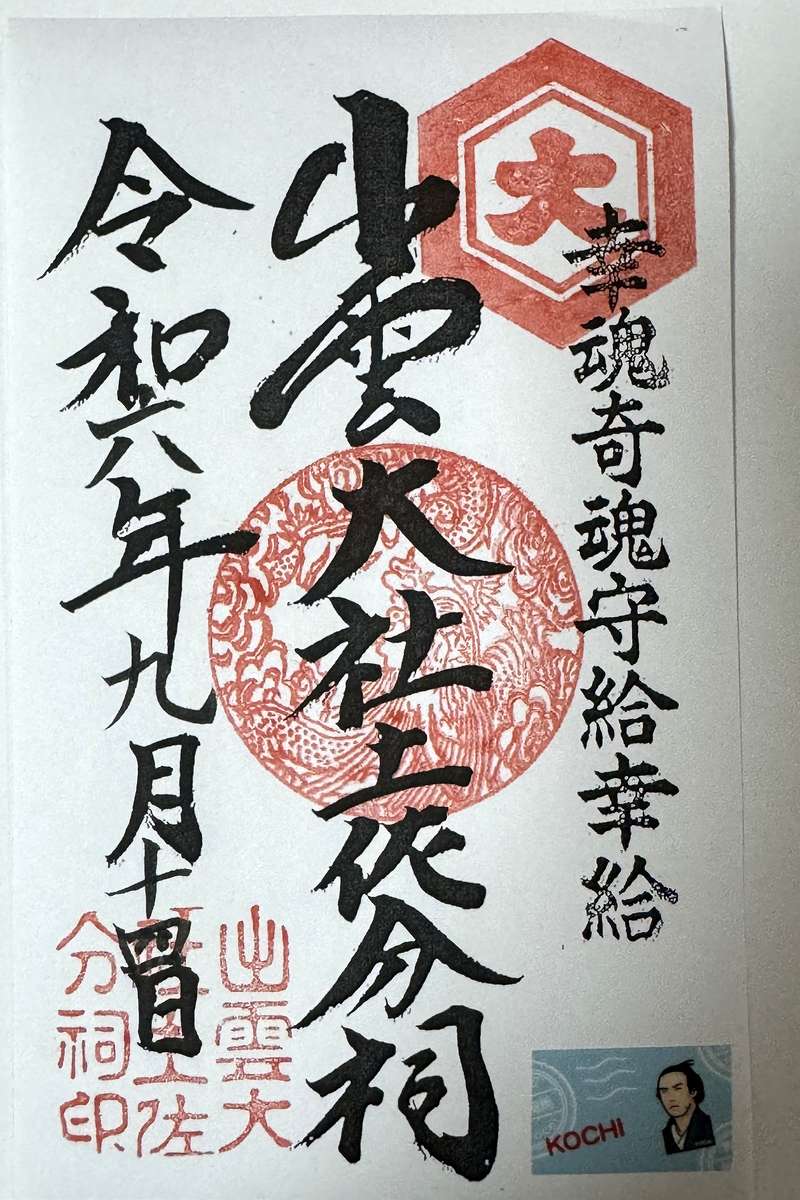 大
幸魂奇魂守給幸給
出雲大社土佐分祠
令和六年九月十四日
出雲大
社土佐
分祠印
KOCHI